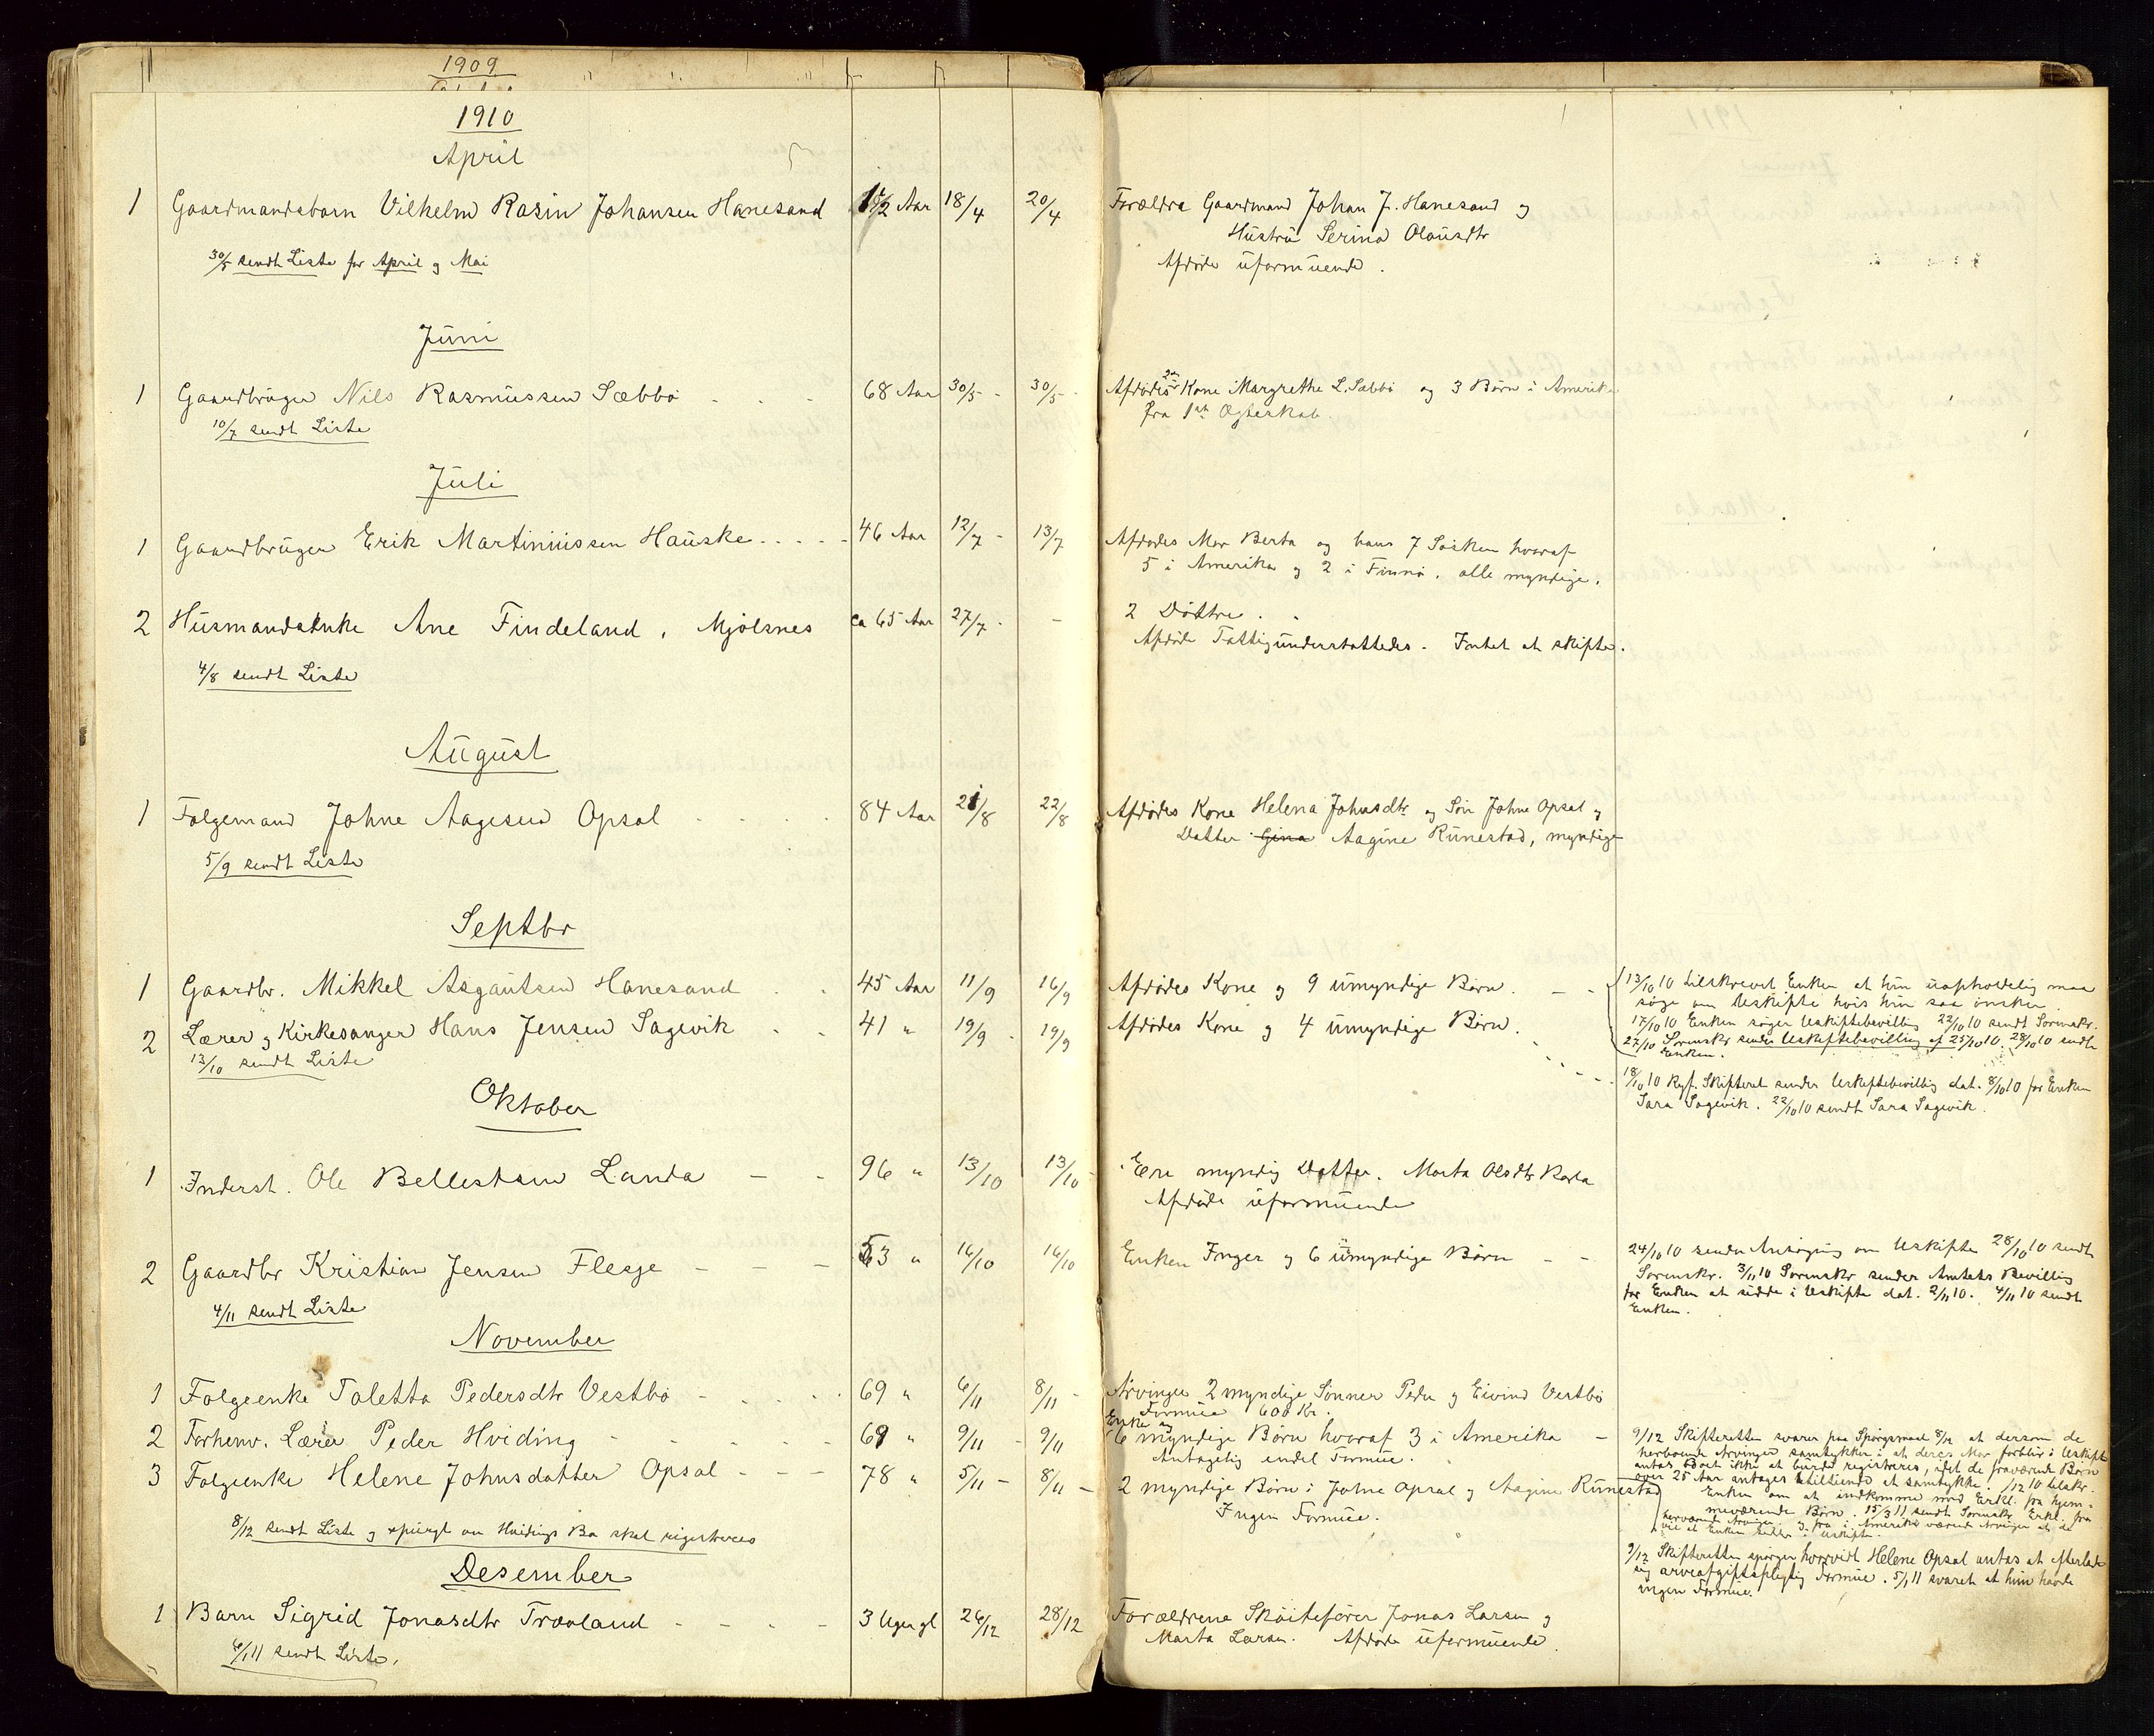 1909
1910
April
1 Gaardmandsbarn Vilhelm Rasin Johansen Hanesand Aar 18/4 20/4 Forældre Gaardmand Johan J. Hanesand og
Hustrü Serina Olaüsdtr
30/5 sendt Liste for April og Mai Afdøde üformüende.
Jüni
1 Gaardbrüger Nils Rasmüssen Sæbbø - - - 68 Aar 30/5 - 30/5 - Afdødes 2den Kone Margrethe L. Sæbbø og 3 Børn i Amerika
10/7 sendt Liste fra 1ste Ægteskab.
Jüli
1 Gaardbrüger Erik Martiniüssen Haüske . . . . - 46 Aar 12/7 - 13/7 Afdødes Mor Berta og hans 7 Søsken hvoraf
5 i Amerika og 2 i Finnø, alle myndige.
2 Hüsmandsenke Ane Findeland, Mjølsnes ca 65 Aar 27/7 - - 2 Døttre.
Afdøde Fattigünderstøttedes. Intet at skifte.
4/8 sendt Liste
Aügüst
1 Følgemand Johne Aagesen Opsal - - - - 84 Aar 21/8 22/8 Afdødes Kone Helena Johnsdtr og Søn Johne Opsal og
Datter Gina Aagine Rünestad, myndige
5/9 sendt Liste
Septbr
1 Gaardbr. Mikkel Asgaütsen Hanesand - - 45 Aar 11/9 16/9 Afdødes Kone og 9 ümyndige Børn. - - 13/10 10 tilskrevet Enken at hün üopholdelig maa
søge om Uskifte hvis hün saa ønsker.
2 Lærer og Kirkesanger Hans Jensen Sagevik - - 41 " 19/9 - 19/9 Afdødes Kone og 4 ümyndige Børn. 17/10 10 Enken søger Uskiftebevilling 22/10 10 sendt Sorenskr.
27/10 Sorenskr sender Uskiftebevilling af 25/10 10. 28/10 10 sendt
Enken.
13/10 sendt Liste
18/10 10 Ryf. Skifteret sender Uskiftebevillig dat. 8/10 10 for Enken
Sara Sagevik. 22/10 10 sendt Sara Sagevik.
Oktober
1 Inderst. Ole Bellestsen Landa - - 96 " 13/10 13/10 - Een myndig Datter. Marta Olsdtr
Afdøde üformüende
2 Gaardbr Kristian Jensen Flesje - - - 53 " 16/10 16/10 Enken Inger og 6 ümyndige Børn - - 24/10 10 sender Ansøgning om Uskifte 28/10 10 sendt
Sorenskr. 3/11 10 Sorenskr sender Amtets Bevilling
for Enken at sidde i Uskifte dat. 2/11 10. 4/11 10 sendt
Enken.
4/11 sendt Liste
November
1 Følgeenke Taletta Pedersdtr Vestbø - - - 69 " 6/11 8/11 - Arvinger 2 myndige Sønner Peder og Eivind Vestbø
Formüe 600 Kr.
2 Forhenv. Lærer Peder Hviding - - - - 69 " 9/11 - 9/11 Enke og 6 myndige Børn hvoraf 3 i Amerika -
Antagelig endel Formüe.
9/12 Skifteretten svarer paa Spørgsmaal 8/12 at dersom de
herboende Arvinger samtykker i at deres Mor forblir i Uskifte
antas Boet ikke at bürde registreres, idet de fraværende Børn
over 25 Aar antages stiltiende at samtykke. tilskr.
Enken om at indkomme med Erkl. fra hjem-
meværende Børn. 15/3 11 sendt Sorenskr. Erkl. fra
herværende Arvinger og fra i Amerika værende Arvinger at de
vil at Enken sidder i Uskifte.
3 Følgeenke Helene Johnsdatter Opsal - - - 78 " 5/11 - 8/11 - 2 myndige Børn: Johne Opsal og Aagine Rünestad
Ingen Formüe.
8/12 sendt Liste og spürgt om Hvidings Bo skal registreres
9/12 Skifteretten spørger hvorvidt Helene Opsal antas at efterlade
sig arveafgiftspligtig Formüe. 5/1 11 svaret at hün havde
ingen Formüe.
Desember
1 Barn Sigrid Jonasdtr Trævland - - - - 3 Uger gl 26/12 28/12 Forældrene Skøitefører Jonas Larsen og
Marta Larsen. Afdøde üformüende.
6/1 11 sendt Liste.